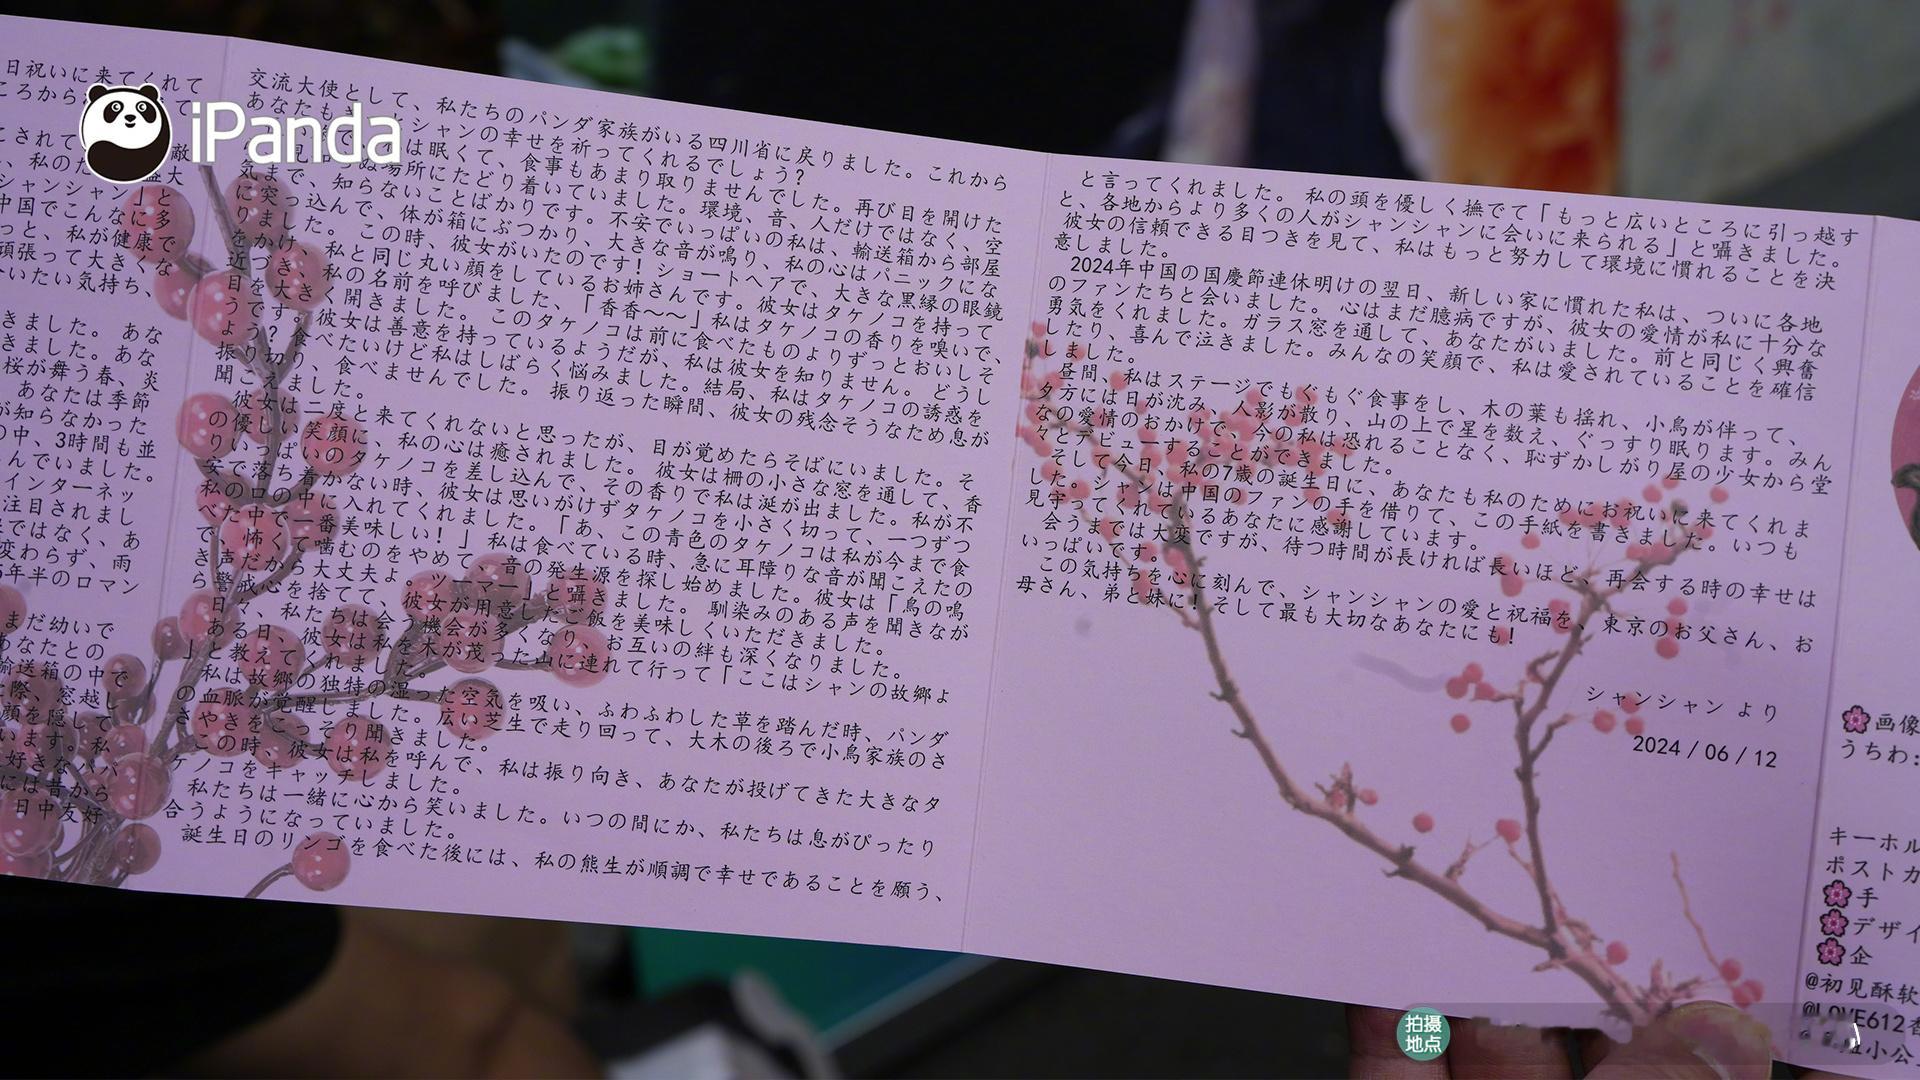 iPanda
日祝いに来てくれて
ころから
こされて
、私のた
シャンシャン」と
中国でこんなに多
っと、私が健康で
頑張って大きくな
いたい気持ち、
きました。あな
きました。あな
桜が舞う春、炎
、あなたは季節
が知らなかった
の中、3時間も並
んでいました。
インターネッ
注目されまし
ではなく、あ
変わらず、雨
年半のロマン
まだ幼いで
あなたとの
輸送箱の中で
際、窓越し
顔を隠して
います。私
好きなパパ
には昔から
日中友好
交流大使として、私たちのパンダ家族がいる四川省に戻りました。これから
あなたも シャンの幸せを祈ってくれるでしょう?
は眠くて、食事もあまり取りませんでした。再び目を開けた
ぬ場所にたどり着いていました。環境、音、人だけではなく、空
気まで、知らないことばかりです。不安でいっぱいの私は、輸送箱から部屋
に突っ込んで、体が箱にぶつかり、大きな音が鳴り、私の心はパニックにな
りました。この時、彼女がいたのです!ショートヘアで、大きな黒縁の眼鏡
をかけ、私と同じ丸い顔をしているお姉さんです。彼女はタケノコを持って
近づき、私の名前を呼びました、「香香~~」私はタケノコの香りを嗅いで、
目を大きく開きました。このタケノコは前に食べたものよりずっとおいしそ
うです。彼女は善意を持っているようだが、私は彼女を知りません。どうし
よう?食べたいけど私はしばらく悩みました。結局、私はタケノコの誘惑を
振り切り、食べませんでした。振り返った瞬間、彼女の残念そうなため息が
聞こえました。
彼女は二度と来てくれないと思ったが、目が覚めたらそばにいました。そ
の優しい笑顔に、私の心は癒されました。彼女は柵の小さな窓を通して、香
りいっぱいのタケノコを差し込んで、その香りで私は涎が出ました。私が不
安で落ち着かない時、彼女は思いがけずタケノコを小さく切って、一つずつ
私の口の中に入れてくれました。「あ、この青色のタケノコは私が今まで食
べた中で一番美味しい!」私は食べている時、急に耳障りな音が聞こえたの
で、怖くて噛むのをやめて、音の発生源を探し始めました。彼女は「鳥の鳴
き声だから大丈夫よ。ツーマー」と囁きました。馴染みのある声を聞きなが
ら警戒心を捨てて、彼女が用意したご飯を美味しくいただきました。
日々、私たちは会う機会が多くなり、お互いの絆も深くなりました。
ある日、彼女は私を木が茂った山に連れて行って「ここはシャンの故郷よ
」と教えてくれました。
私は故郷の独特の湿った空気を吸い、ふわふわした草を踏んだ時、パンダ
の血脈が覚醒しました。広い芝生で走り回って、大木の後ろで小鳥家族のさ
さやきをこっそり聞きました。
この時、彼女は私を呼んで、私は振り向き、あなたが投げてきた大きなタ
ケノコをキャッチしました。
私たちは一緒に心から笑いました。いつの間にか、私たちは息がぴったり
合うようになっていました。
誕生日のリンゴを食べた後には、私の熊生が順調で幸せであることを願う、
と言ってくれました。私の頭を優しく撫でて「もっと広いところに引っ越す
と、各地からより多くの人がシャンシャンに会いに来られる」と囁きました。
彼女の信頼できる目つきを見て、私はもっと努力して環境に慣れることを決
意しました。
2024年中国の国慶節連休明けの翌日、新しい家に慣れた私は、ついに各地
のファンたちと会いました。心はまだ臆病ですが、彼女の愛情が私に十分な
勇気をくれました。ガラス窓を通して、あなたがいました。前と同じく興奮
したり、喜んで泣きました。みんなの笑顔で、私は愛されていることを確信
しました。
昼間、私はステージでもぐもぐ食事をし、木の葉も揺れ、小鳥が伴って、
夕方には日が沈み、人影が散り、山の上で星を数え、ぐっすり眠ります。みん
なの愛情のおかげで、今の私は恐れることなく、恥ずかしがり屋の少女から堂
々とデビューすることができました。
そして今日、私の7歳の誕生日に、あなたも私のためにお祝いに来てくれま
した。シャンは中国のファンの手を借りて、この手紙を書きました。いつも
見守ってくれているあなたに感謝しています。
会うまでは大変ですが、待つ時間が長ければ長いほど、再会する時の幸せは
いっぱいです。
この気持ちを心に刻んで、シャンシャンの愛と祝福を、東京のお父さん、お
母さん、弟と妹に!そして最も大切なあなたにも!
シャンシャン より
2024 / 06 / 12
画像
うちわ:
キーホル
ポストカ
手
デザイ
企
@初见酥软
@LOVE612香
小公
拍摄
地点